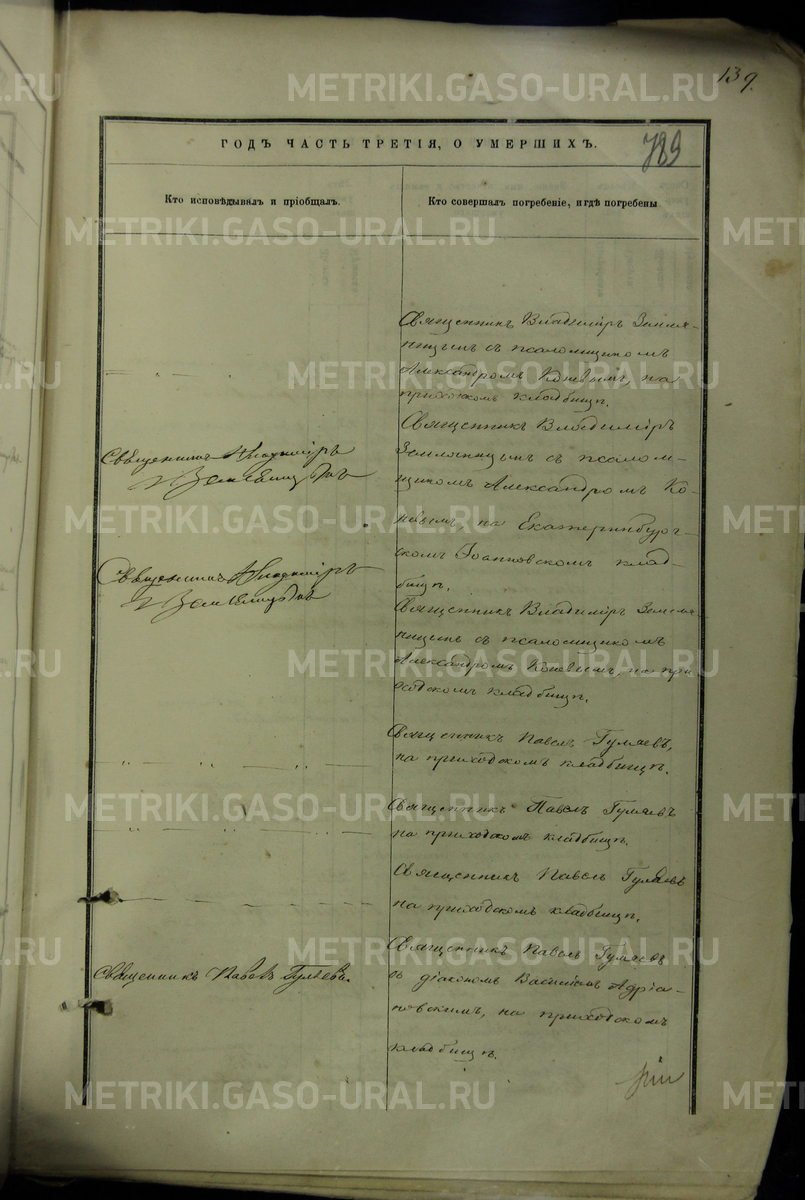 139.
ГОДЪ ЧАСТЬ ТРЕТІЯ, О УМЕРШИХЪ.
789
Кто исповѣдывалъ и пріобщалъ.
Кто совершалъ погребеніе, и гдѣ погребены
Священникъ Владиміръ Земля-
ницынъ съ псаломщикомъ
Александромъ Коневымъ, на
приходскомъ кладбищѣ.
Священникъ Владиміръ
Земляницынъ
Священникъ Владиміръ
Земляницынъ съ псалом-
щикомъ Александромъ Ко-
невымъ, на Екатеринбург-
скомъ Іоанновскомъ клад-
бищѣ.
Священникъ Владиміръ
Земляницынъ
Священникъ Владиміръ Земля-
ницынъ съ псаломщикомъ
Александромъ Коневымъ, на при-
ходскомъ кладбищѣ.
Священникъ Павелъ Гуляевъ,
на приходскомъ кладбищѣ.
Священникъ Павелъ Гуляевъ
на приходскомъ кладбищѣ.
Священникъ Павелъ Гуляевъ
на приходскомъ кладбищѣ.
Священникъ Павелъ Гуляевъ.
Священникъ Павелъ Гуляевъ
съ діакономъ Василіемъ Адріа-
новскимъ, на приходскомъ
кладбищѣ.
METRIKI.GASO-URAL.RU